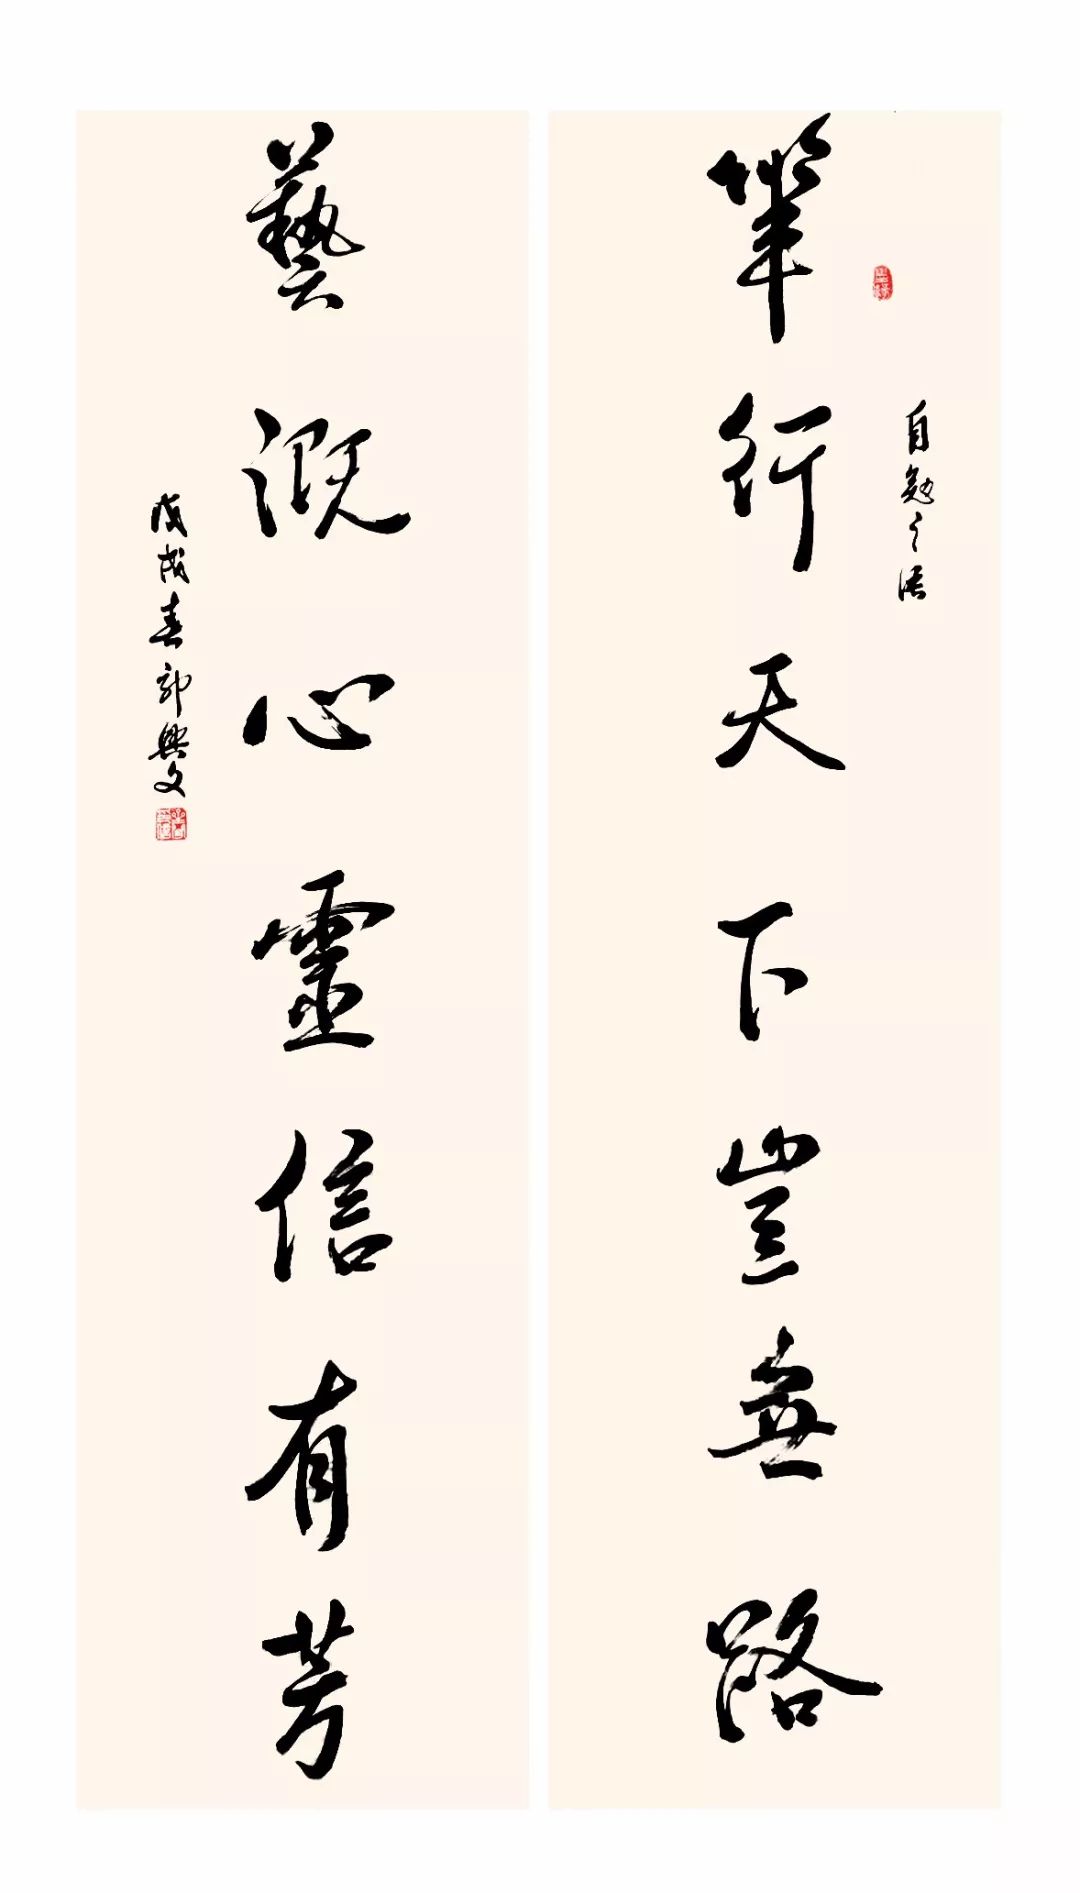 自勉之语
筆行天下豈無路
藝溉心靈信有芳
戊戌春郭興文